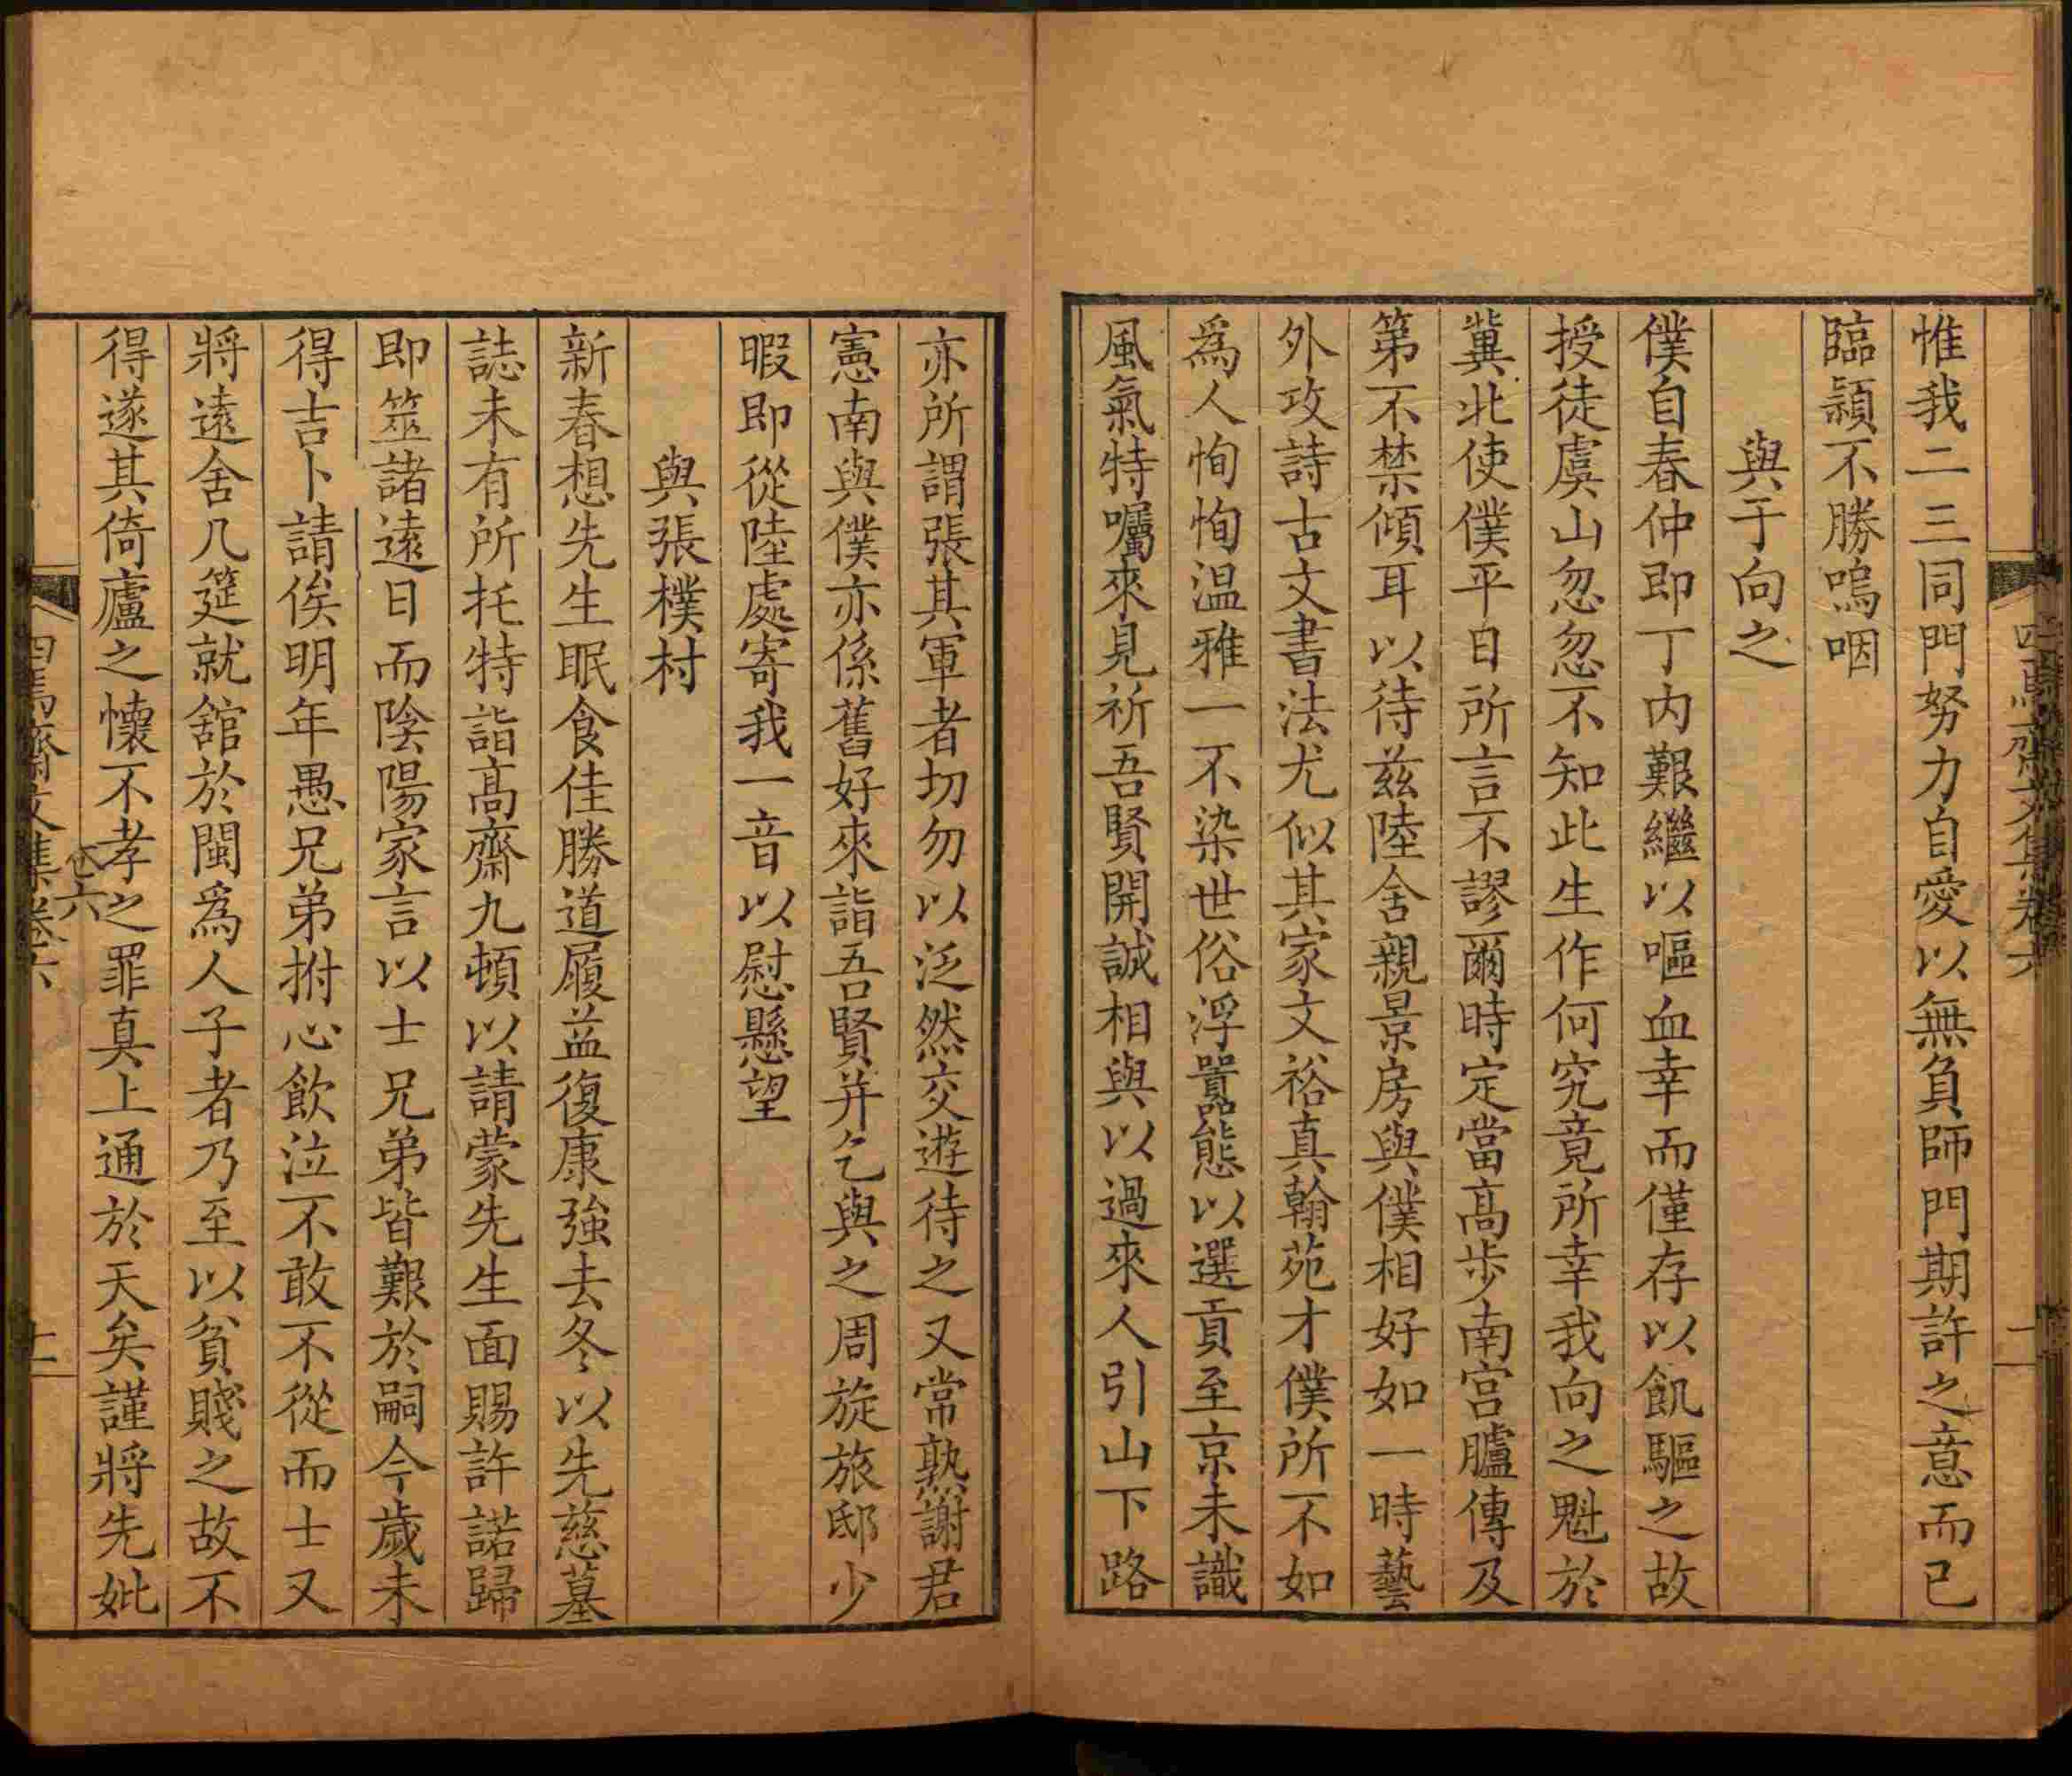 惟我二三同門努力自愛以無負師門期許之意而已
臨穎不勝嗚咽
與于向之
僕自春仲即丁内艱繼以嘔血幸而僅存以飢驅之故
授徒虞山忽忽不知此生作何究竟所幸我向之魁於
冀北使僕平日所言不謬爾時定當高步南宫臚傳及
第不禁傾耳以待兹陸舍親景房與僕相好如一時藝
外攻詩古文書法尤似其家文裕真翰苑才僕所不如
爲人恂恂温雅一不染世俗浮囂態以選貢至京未識
風氣特囑來見祈吾賢開誠相與以過來人引山下路
亦所謂張其軍者切勿以泛然交遊待之又常熟謝君
憲南與僕亦係舊好來詣吾賢并乞與之周旋旅邸少
暇即從陸處寄我一音以慰懸望
與張樸村
新春想先生眠食佳勝道履益復康強去冬以先慈墓
誌未有所托特詣高齋九頓以請蒙先生面賜許諾歸
即筮諸遠日而陰陽家言以士兄弟皆艱於嗣今歲未
得吉卜請俟明年愚兄弟拊心飲泣不敢不從而士又
將遠舍几筵就舘於閩爲人子者乃至以貧賤之故不
得遂其倚廬之懷不孝之罪真上通於天矣謹將先妣
四焉齋文集卷六
卷六